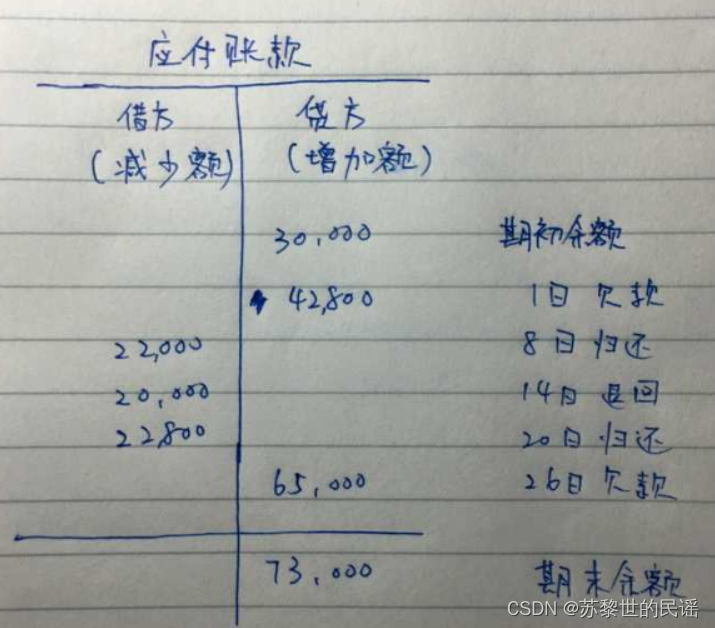 应付账款
借方 贷方
(减少额) (增加额)
30,000 期初余额
42,800 1日 欠款
22,000 8日 归还
20,000 14日 退回
22,800 20日 归还
65,000 26日 欠款
73,000 期末余额
CSDN @苏黎世的民谣